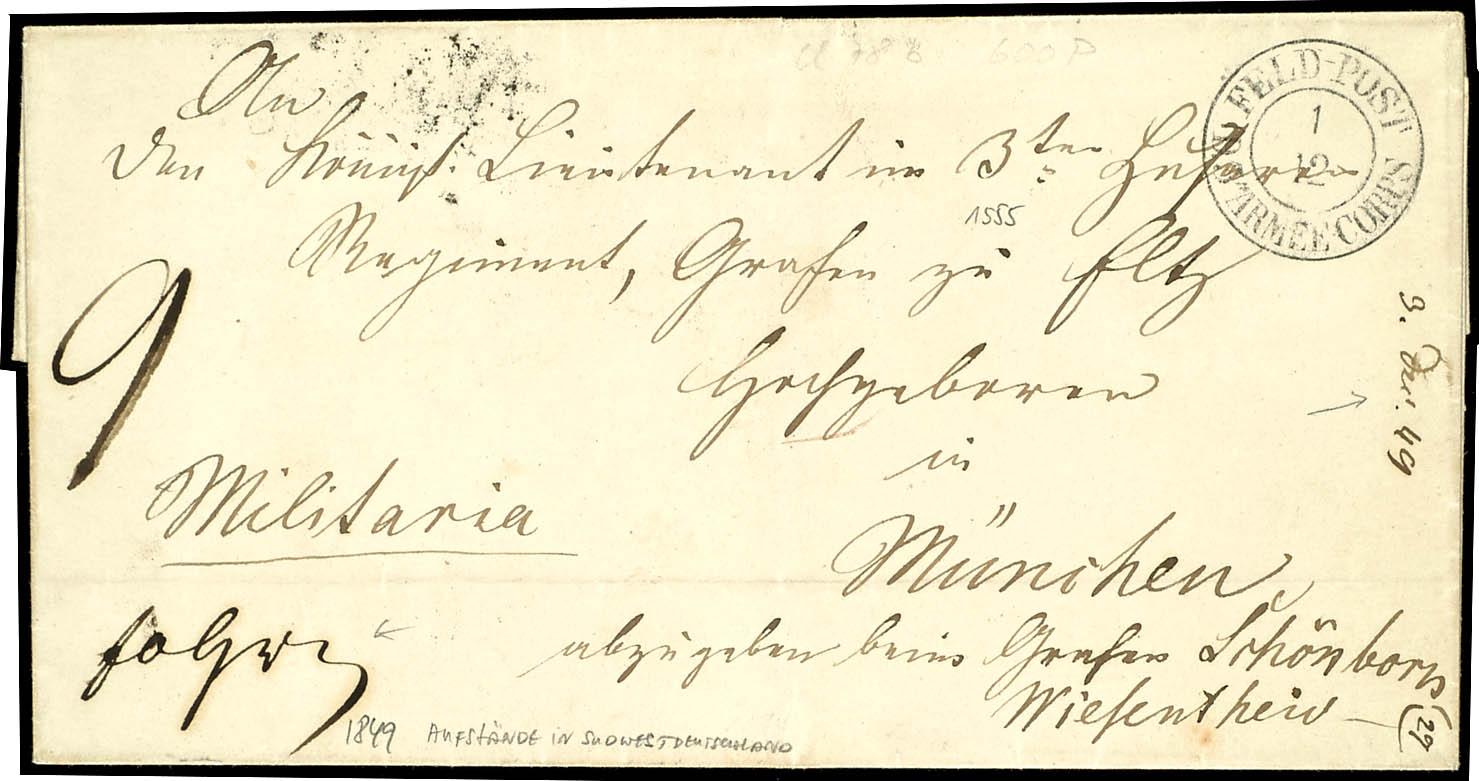 An
den Königl. Lieutenant im 3ten Husaren
Regiment, Grafen zu Eltz
Hochgeboren
in
München
abzugeben beim Grafen Schönborn
Wiesentheid
Militaria
9
FELD-POST
1
12
D'ARMÉE CORPS
1555
600 P
3. Dec. 49
29
1849 AUFSTÄNDE IN SÜDWESTDEUTSCHLAND